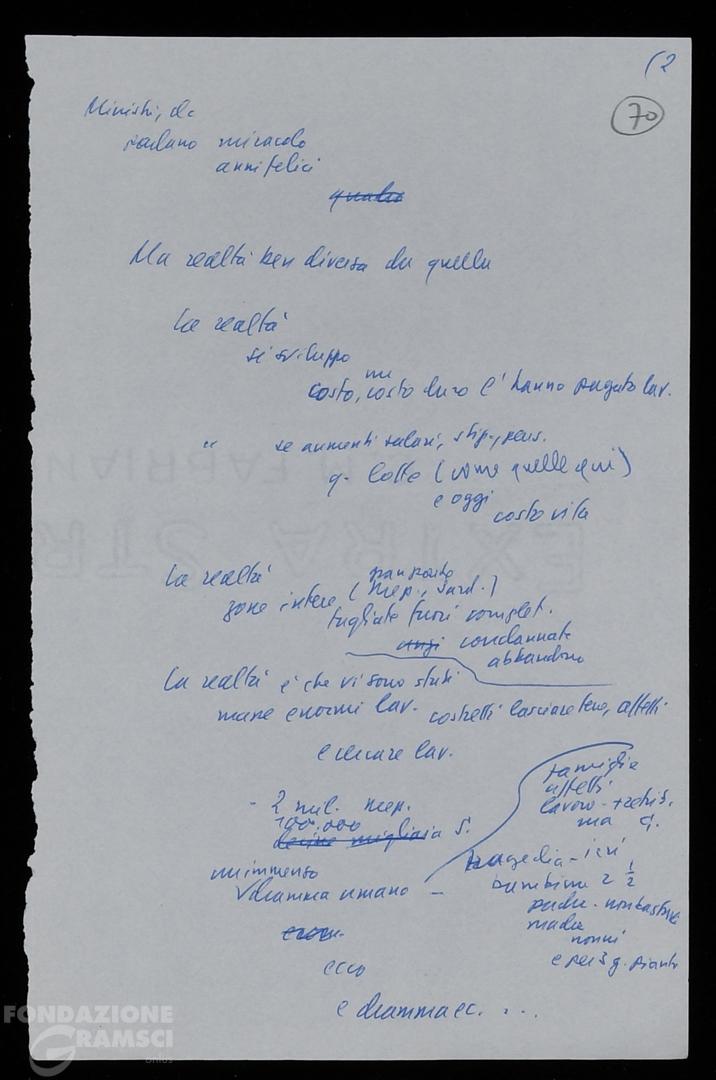 (2
70
Ministri, d.c
parlano miracolo
anni felici
Ma realtà ben diversa da quella
La realtà
si sviluppo
ma
costo, costo duro l'hanno pagato lav.
" se aumenti salari, stip., pens.
q. lotte (come quelle qui)
e oggi
costo vita
La realtà
zone intere (Mep., Sard.)
tagliate fuori complet.
anzi condannate
abbandono
La realtà è che vi sono stati
mane enormi lav. costretti lasciare terre, affetti
e cercare lav.
- 2 mil. mep.
100.000
decine migliaia S.
un immenso
dramma umano -
famiglia
affetti
lavoro -
ma q.
tragedia - ieri
bambina 2 1/2
padre -
madre
nonni
e per 3 g. pianto
ecco
e dramma ec. ...
FONDAZIONE
GRAMSCI
onlus